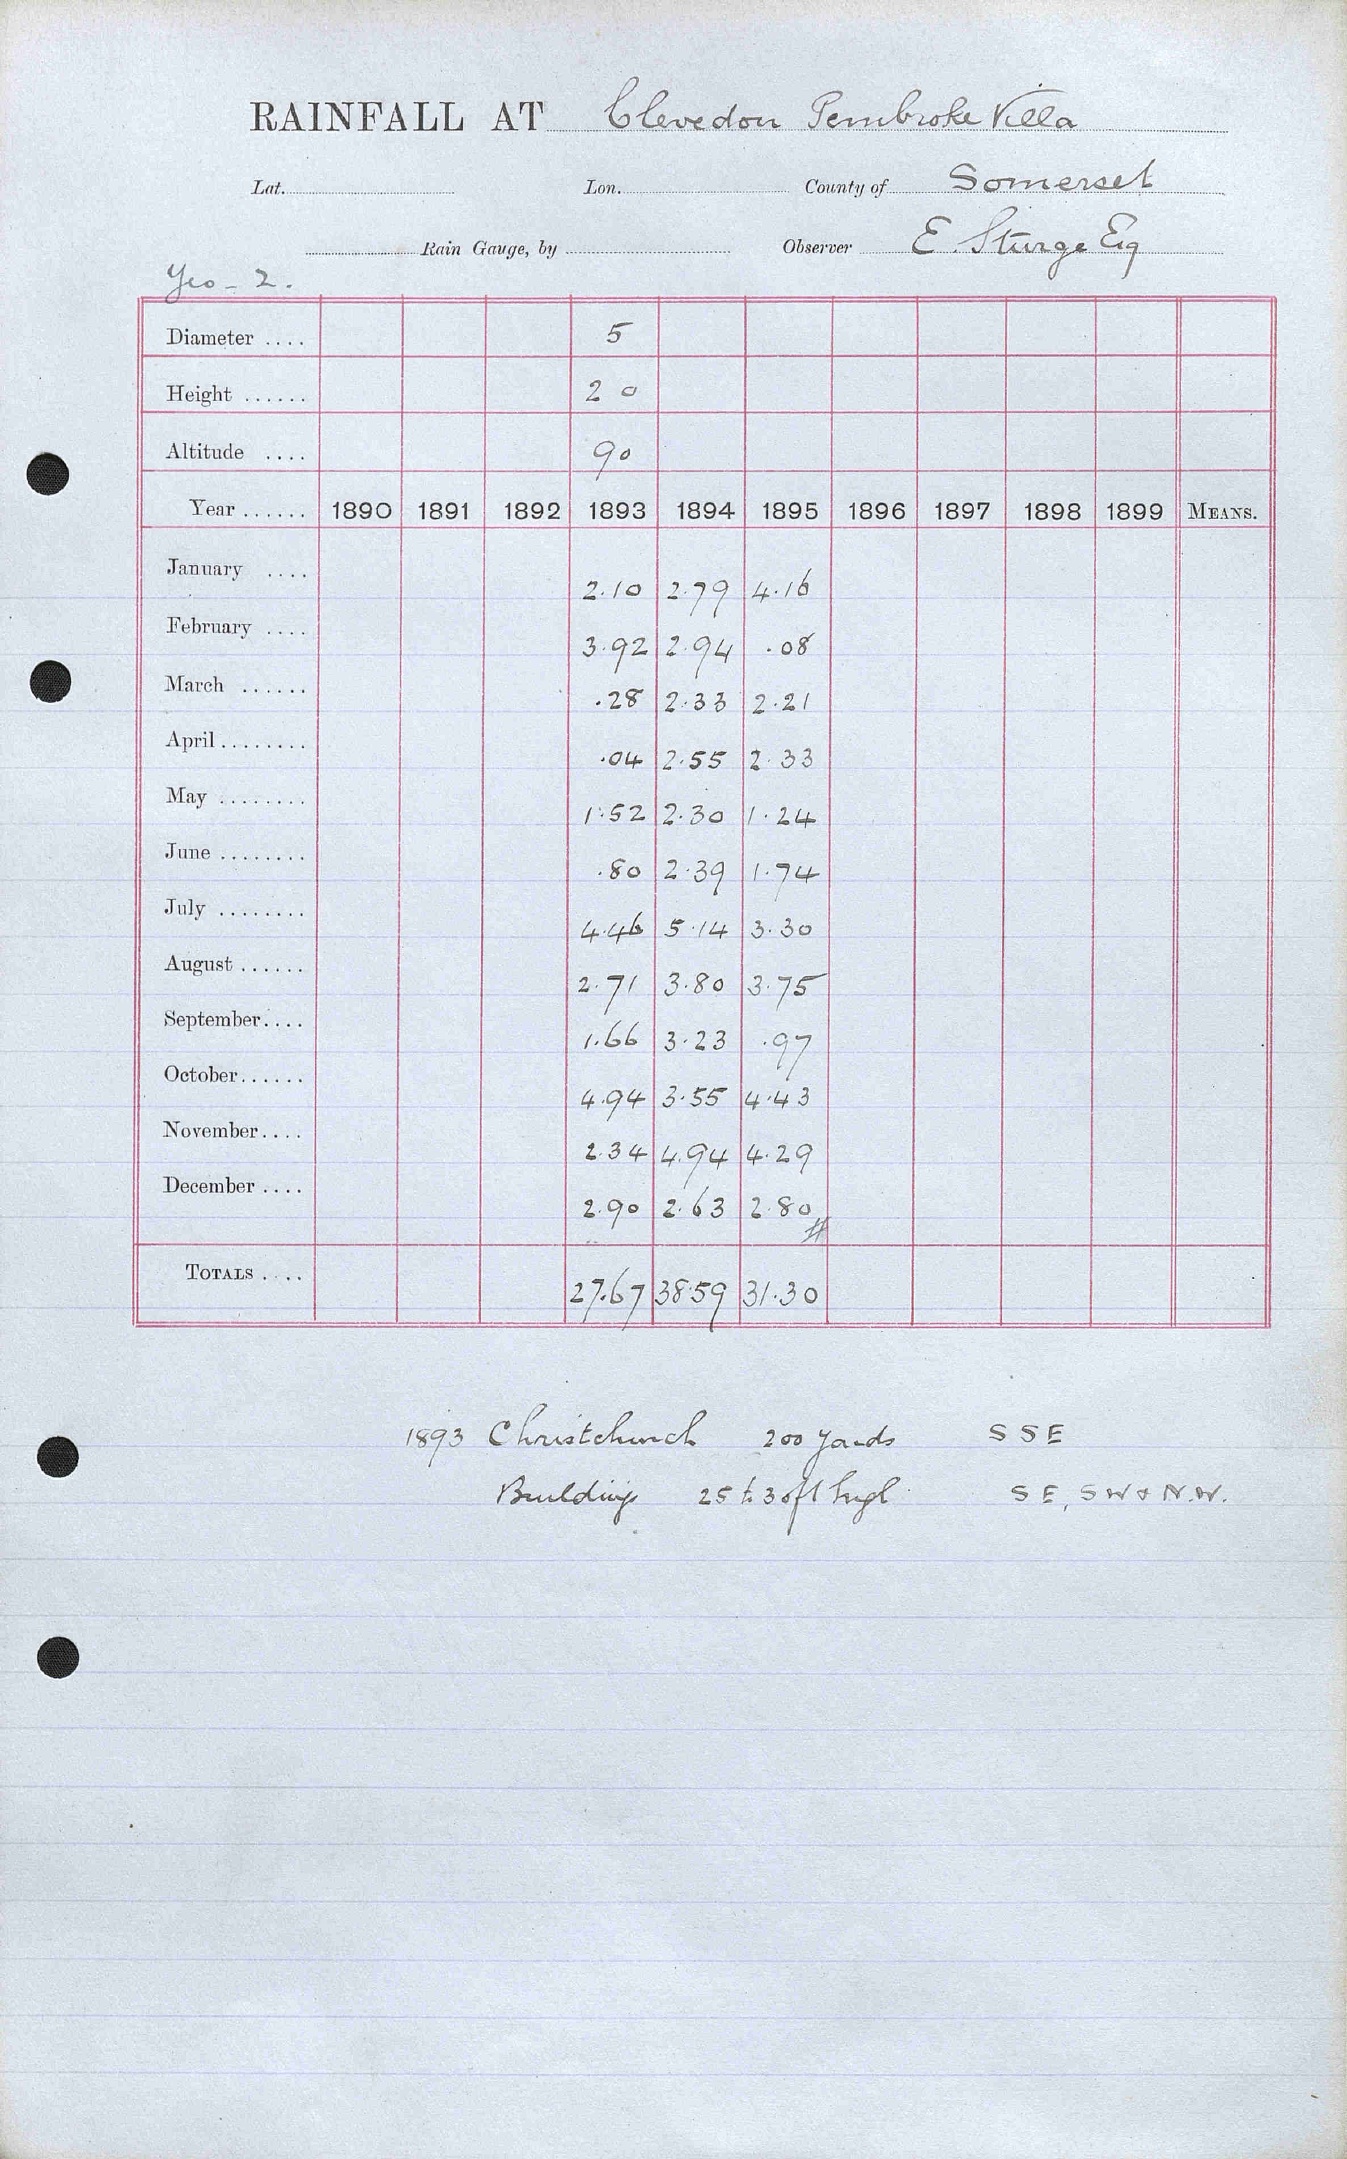 RAINFALL AT Clevedon Pembroke Villa
Lat. Lon. County of Somerset
Rain Gauge, by Observer E. Sturge Esq
Yeo - 2.
Diameter .... 5
Height ...... 2 0
Altitude .... 90
Year ...... 1890 1891 1892 1893 1894 1895 1896 1897 1898 1899 MEANS.
January .... 2.10 2.79 4.16
February .... 3.92 2.94 .08
March ...... .28 2.33 2.21
April ........ .04 2.55 2.33
May ........ 1.52 2.30 1.24
June ........ .80 2.39 1.74
July ........ 4.46 5.14 3.30
August ...... 2.71 3.80 3.75
September.... 1.66 3.23 .97
October...... 4.94 3.55 4.43
November.... 2.34 4.94 4.29
December .... 2.90 2.63 2.80
TOTALS .... 27.67 38.59 31.30
1893 Christchurch 200 yards S S E
Buildings 25 to 30 ft high S E, S W & N.W.